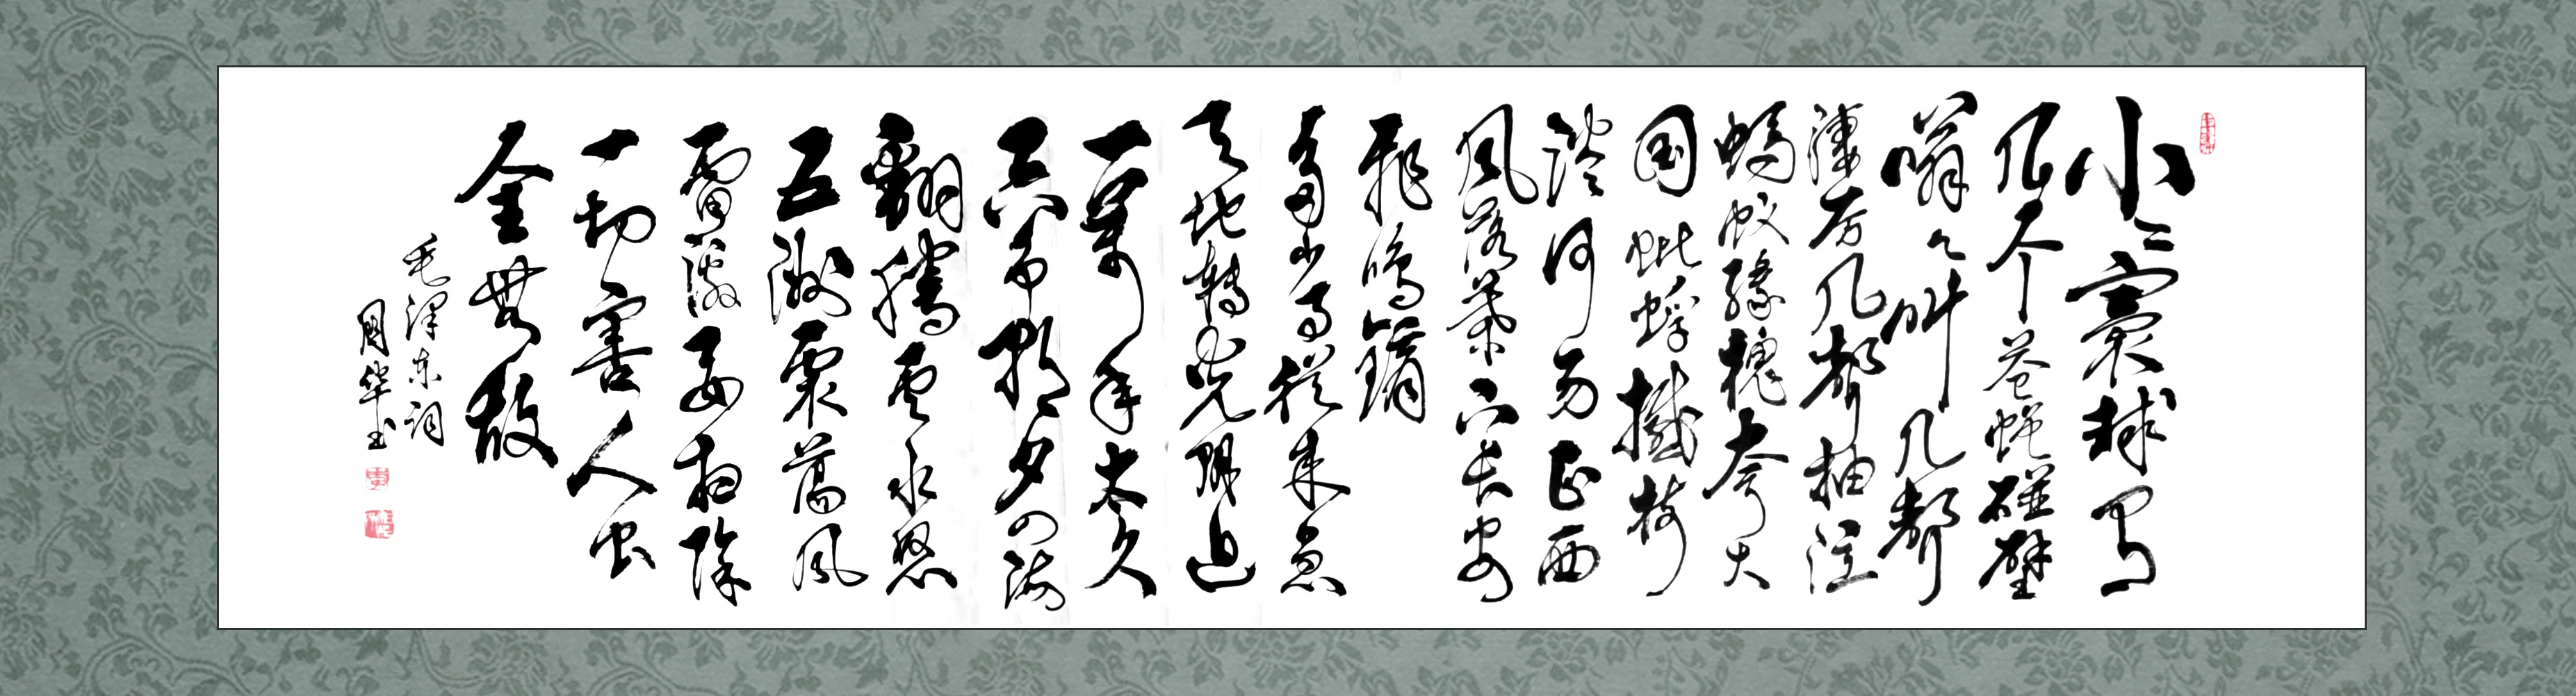 小々寰球有
几个苍蝇碰壁
嗡々叫几聲
凄厉几聲抽泣
蚂蚁缘槐夸大
国蚍蜉撼树
谈何易正西
风落葉下长安
飛鸣镝
多少事从来急
天地转光阴迫
一萬年太久
只争朝夕四海
翻腾云水怒
五洲震荡风
雷激要扫除
一切害人虫
全無敌
毛泽东词
华书